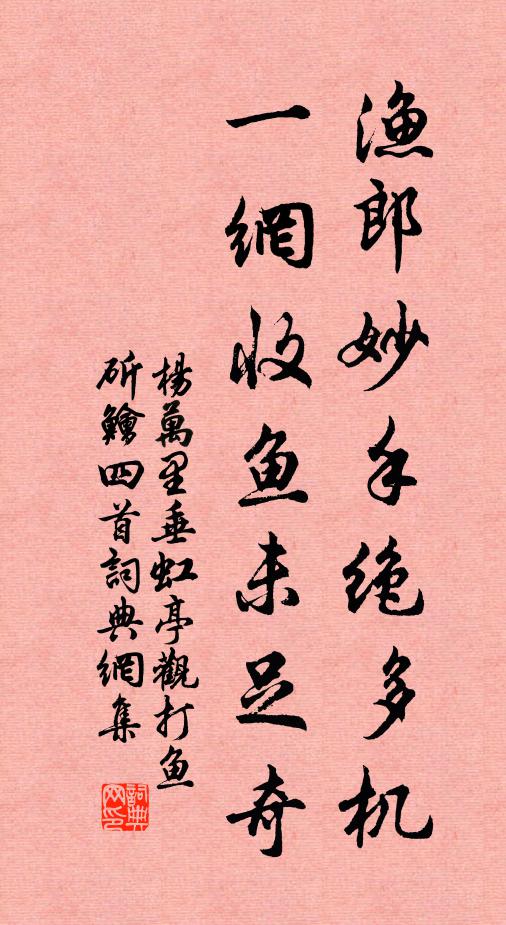 渔郎妙手绝多机
一網收鱼未足奇
楊萬里垂虹亭觀打鱼
斫鱠四首詞典網集
詞典
网印